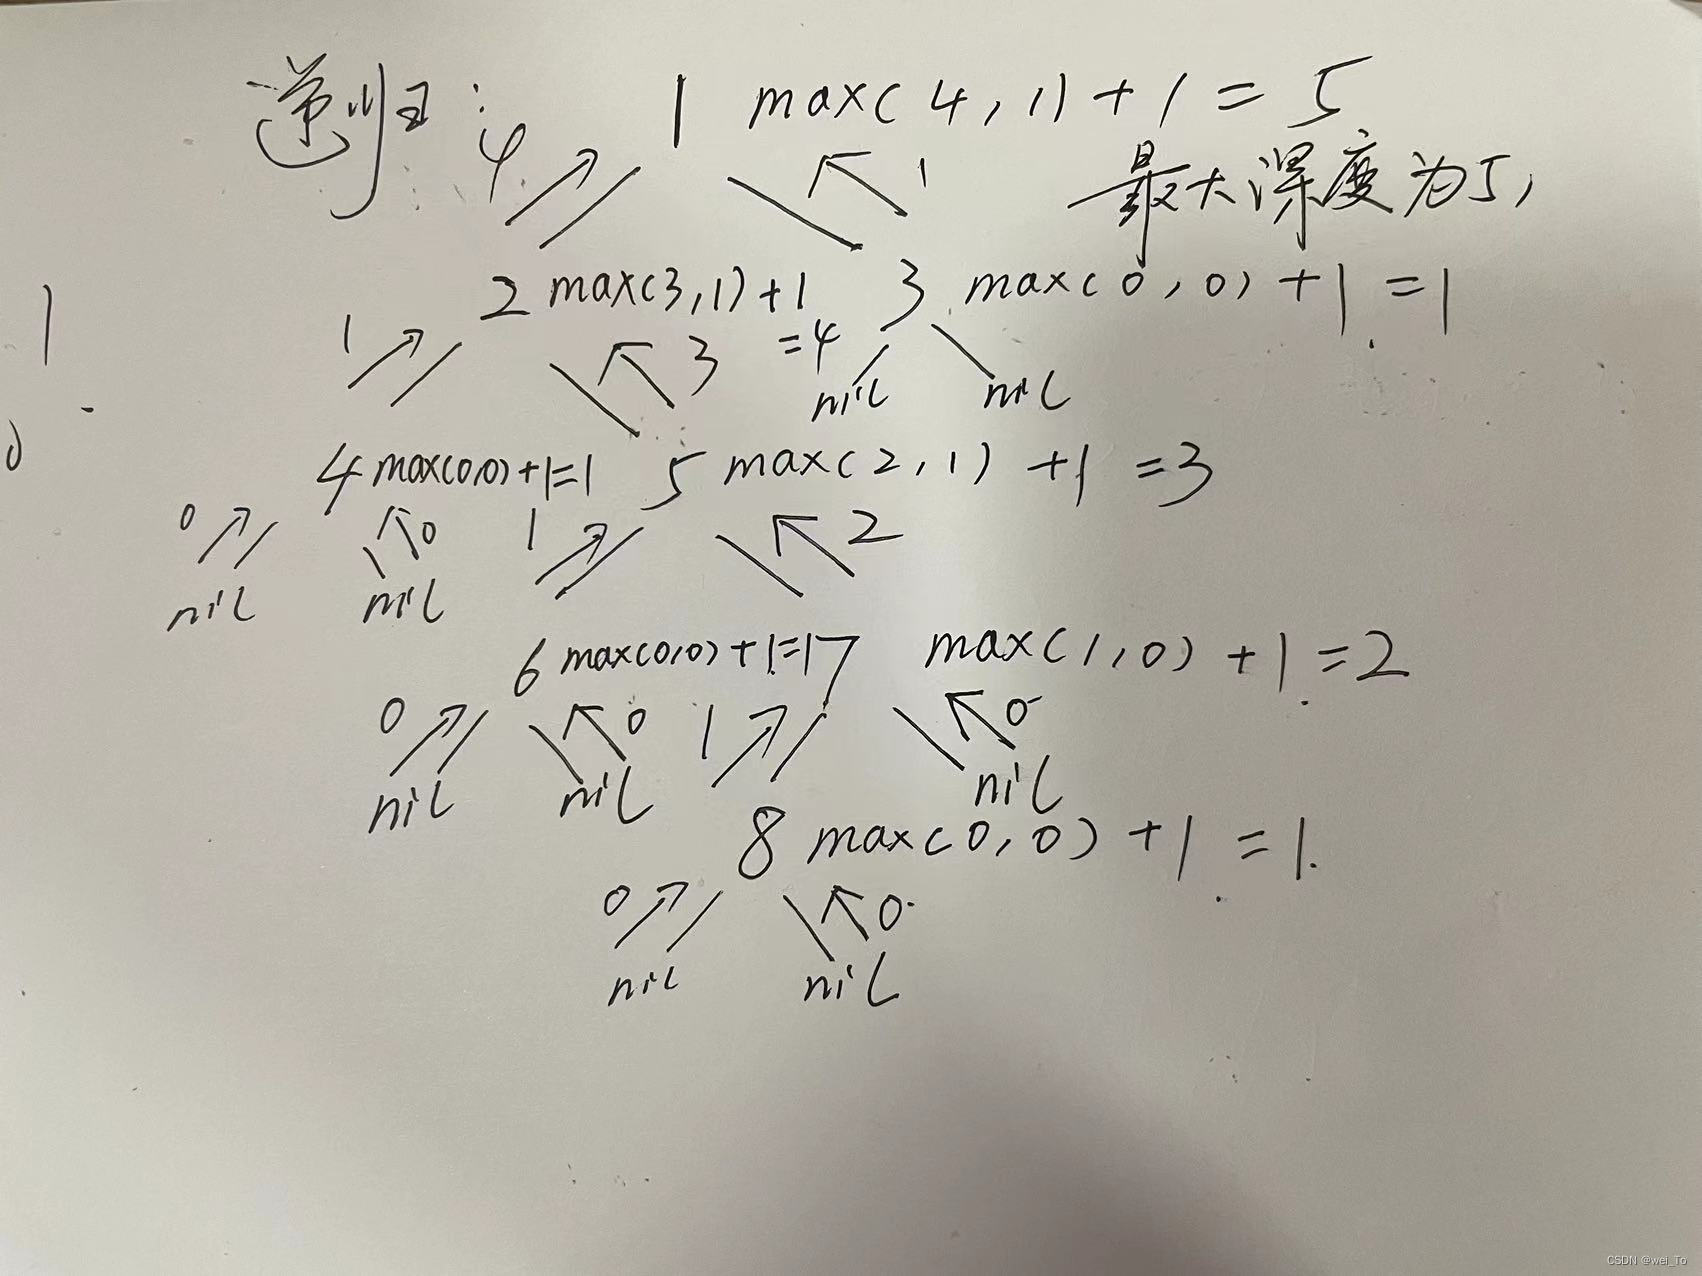 递归: 4 1 max(4,1)+1=5
1 最大深度为5,
2 max(3,1)+1 3 max(0,0)+1=1
1 1 3 =4
nil nil
4 max(0,0)+1=1 5 max(2,1)+1=3
0 0 1 2
nil nil
6 max(0,0)+1=1 7 max(1,0)+1=2
0 0 1 0
nil nil nil
8 max(0,0)+1=1.
0 0
nil nil
CSDN @wei_To